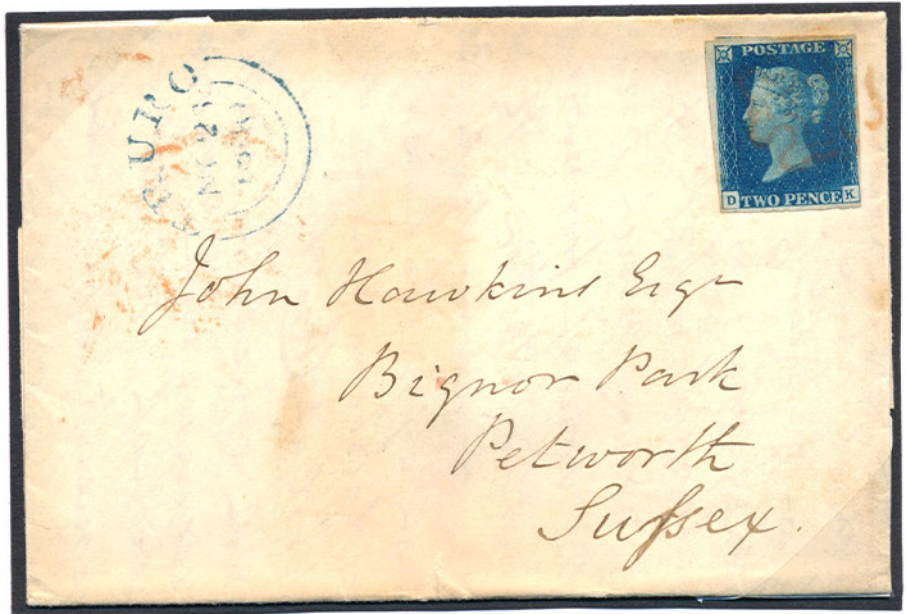 TRURO
POSTAGE
D TWO PENCE K
John Hawkins Esqr
Bignor Park
Petworth
Sussex.